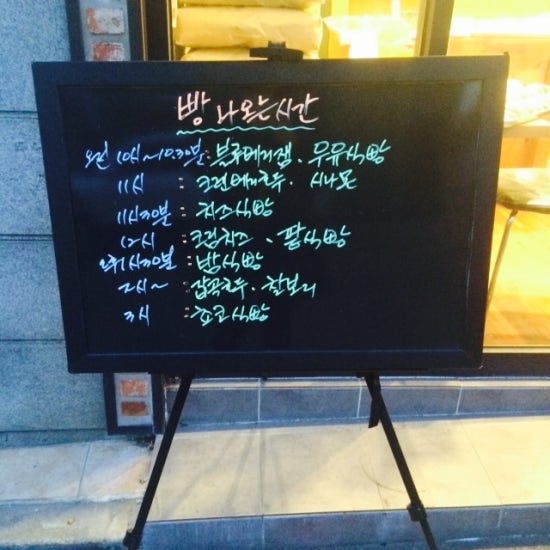 빵 나오는 시간
오전 10시~10:30분: 블루베리잼. 우유식빵
11시 : 크린베리호두. 시나몬
11시30분 : 치즈식빵
12시 : 크림치즈. 팥식빵
오후 1시30분 : 밤식빵
2시~ : 잡곡호두. 찰보리
3시 : 쵸코식빵